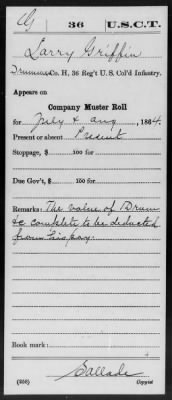 G 36 U.S.C.T.
Larry Griffin
Drummer, Co. H, 36 Reg't U. S. Col'd Infantry.
Appears on
Company Muster Roll
for July & Aug, 1864.
Present or absent Present
Stoppage, $ 100 for
Due Gov't, $ 100 for
Remarks: The value of Drum
&c complete to be deducted
from his pay.
Book mark:
Sallade
(358) Copyist